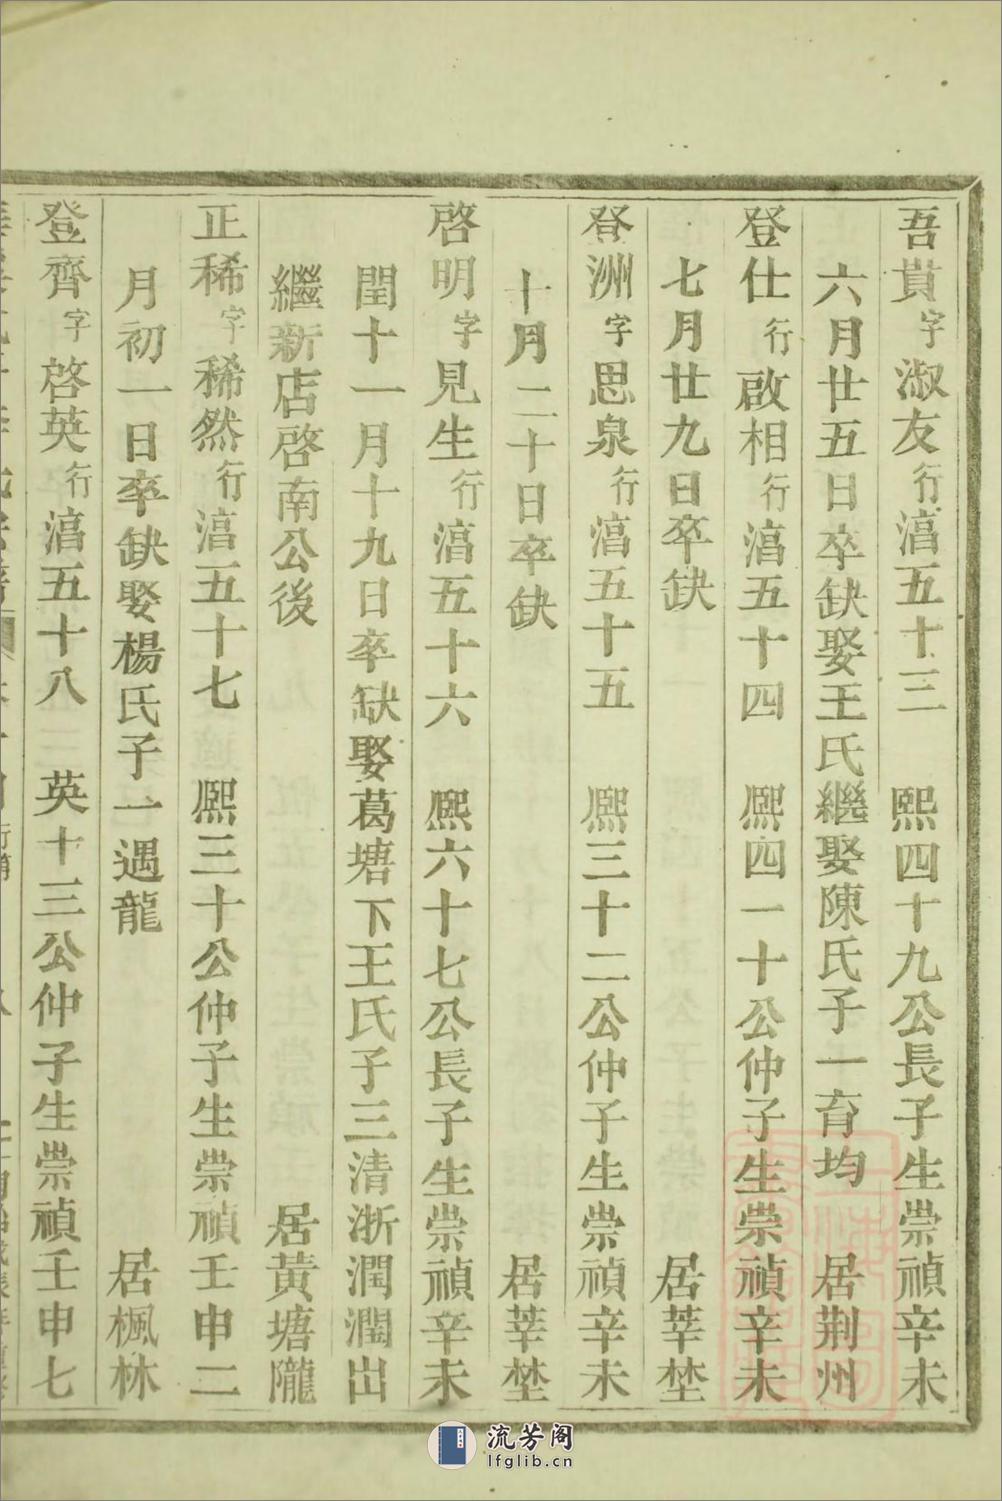 吾貫字淑友行滈五十三　熙四十九公長子生崇禎辛未
六月廿五日卒缺娶王氏繼娶陳氏子一育均　居荆州
登仕行啟相行滈五十四　熙四一十公仲子生崇禎辛未
七月廿九日卒缺　居莘埜
登洲字思泉行滈五十五　熙三十二公仲子生崇禎辛未
十月二十日卒缺　居莘埜
啓明字見生行滈五十六　熙六十七公長子生崇禎辛未
閏十一月十九日卒缺娶葛塘下王氏子三清浙潤潤出
繼新店啓南公後　居黃塘隴
正稀字稀然行滈五十七　熙三十公仲子生崇禎壬申二
月初一日卒缺娶楊氏子一遇龍　居楓林
登齊字啓英行滈五十八　英十三公仲子生崇禎壬申七
流芳阁
lfglib.cn